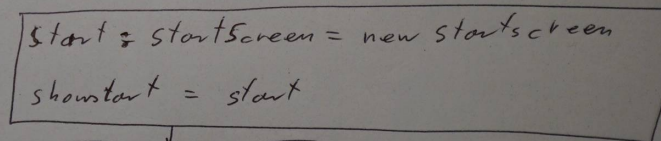 start : startScreen = new startscreen
showstart = start